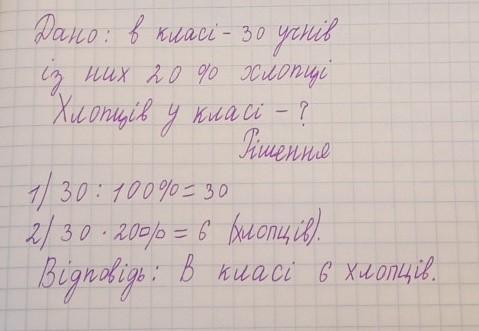 Дано: в класі - 30 учнів
із них 20 % хлопці
Хлопців у класі - ?
Рішення
1) 30 : 100% = 30
2) 30 · 20% = 6 (хлопців).
Відповідь: В класі 6 хлопців.